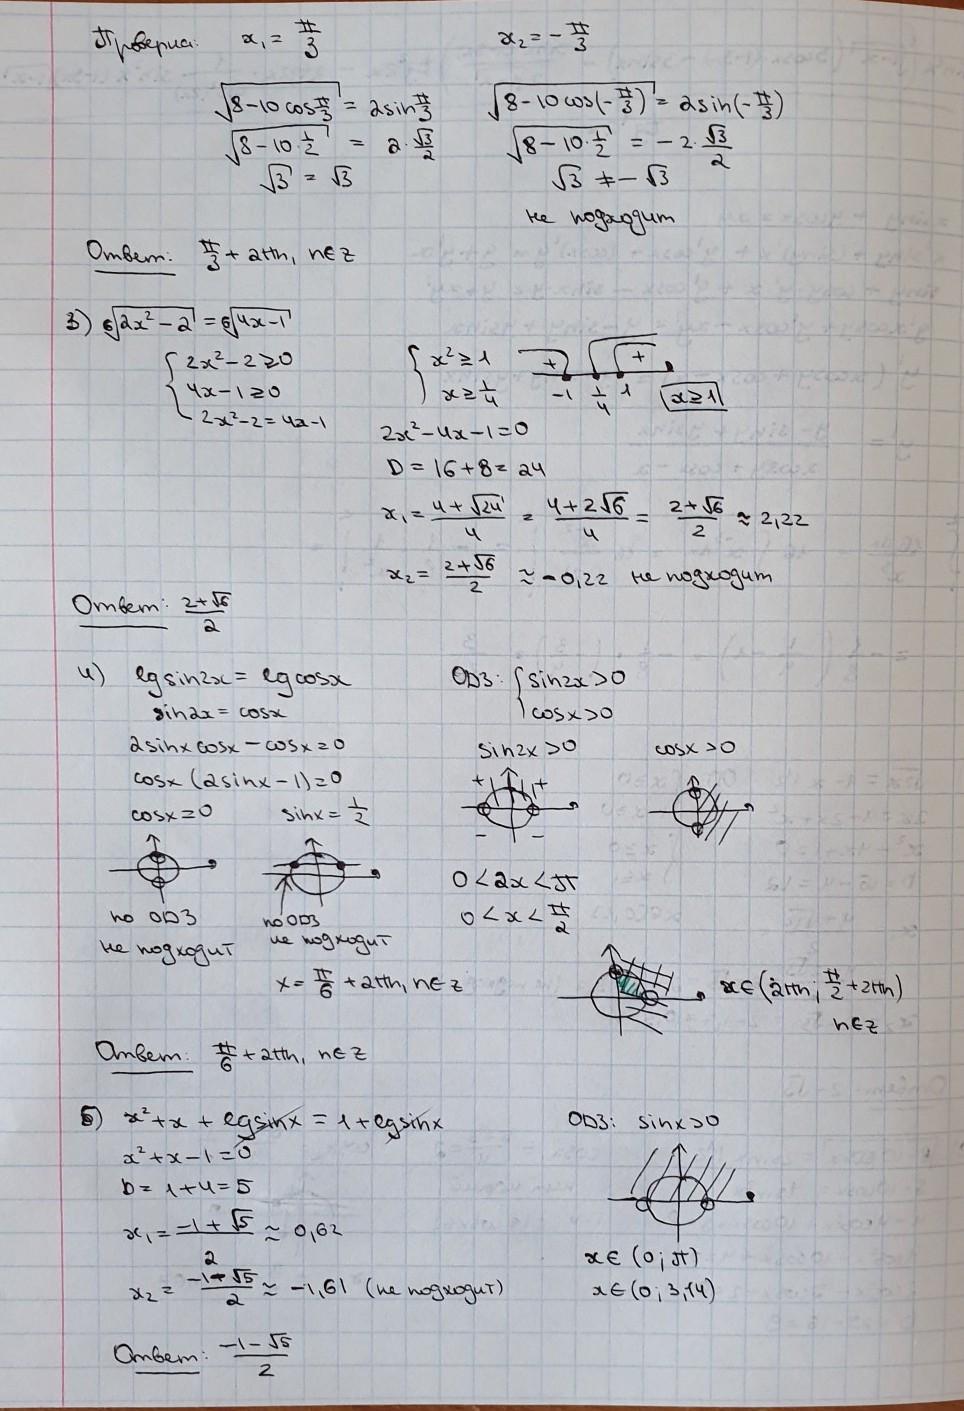 Проверка: x₁ = π/3 x₂ = -π/3
√(8-10cos π/3) = 2sin π/3 √(8-10cos(-π/3)) = 2sin(-π/3)
√(8-10·1/2) = 2·√3/2 √(8-10·1/2) = -2·√3/2
√3 = √3 √3 ≠ -√3
не подходит
Ответ: π/3 + 2πn, n∈z
3) ⁶√(2x²-2) = ⁶√(4x-1)
{ 2x²-2≥0 { x²≥1 + +
4x-1≥0 x≥1/4 -1 1/4 1 x≥1
2x²-2=4x-1
2x²-4x-1=0
D = 16+8 = 24
x₁ = (4+√24)/4 = (4+2√6)/4 = (2+√6)/2 ≈ 2,22
x₂ = (2+√6)/2 ≈ -0,22 не подходит
Ответ: (2+√6)/2
4) lgsin2x = lgcosx ОДЗ: { sin2x>0
sin2x = cosx cosx>0
2sinxcosx - cosx = 0 sin2x>0 cosx>0
cosx(2sinx-1)=0 + +
cosx=0 sinx=1/2 - -
по ОДЗ по ОДЗ 0<2x<π
не подходит не подходит 0<x<π/2
x = π/6 + 2πn, n∈z x∈(2πn; π/2+2πn)
n∈z
Ответ: π/6 + 2πn, n∈z
5) x²+x+lgsinx = 1+lgsinx ОДЗ: sinx>0
x²+x-1=0
D = 1+4 = 5
x₁ = (-1+√5)/2 ≈ 0,62
x∈(0; π)
x₂ = (-1+√5)/2 ≈ -1,61 (не подходит) x∈(0; 3,14)
Ответ: (-1-√5)/2